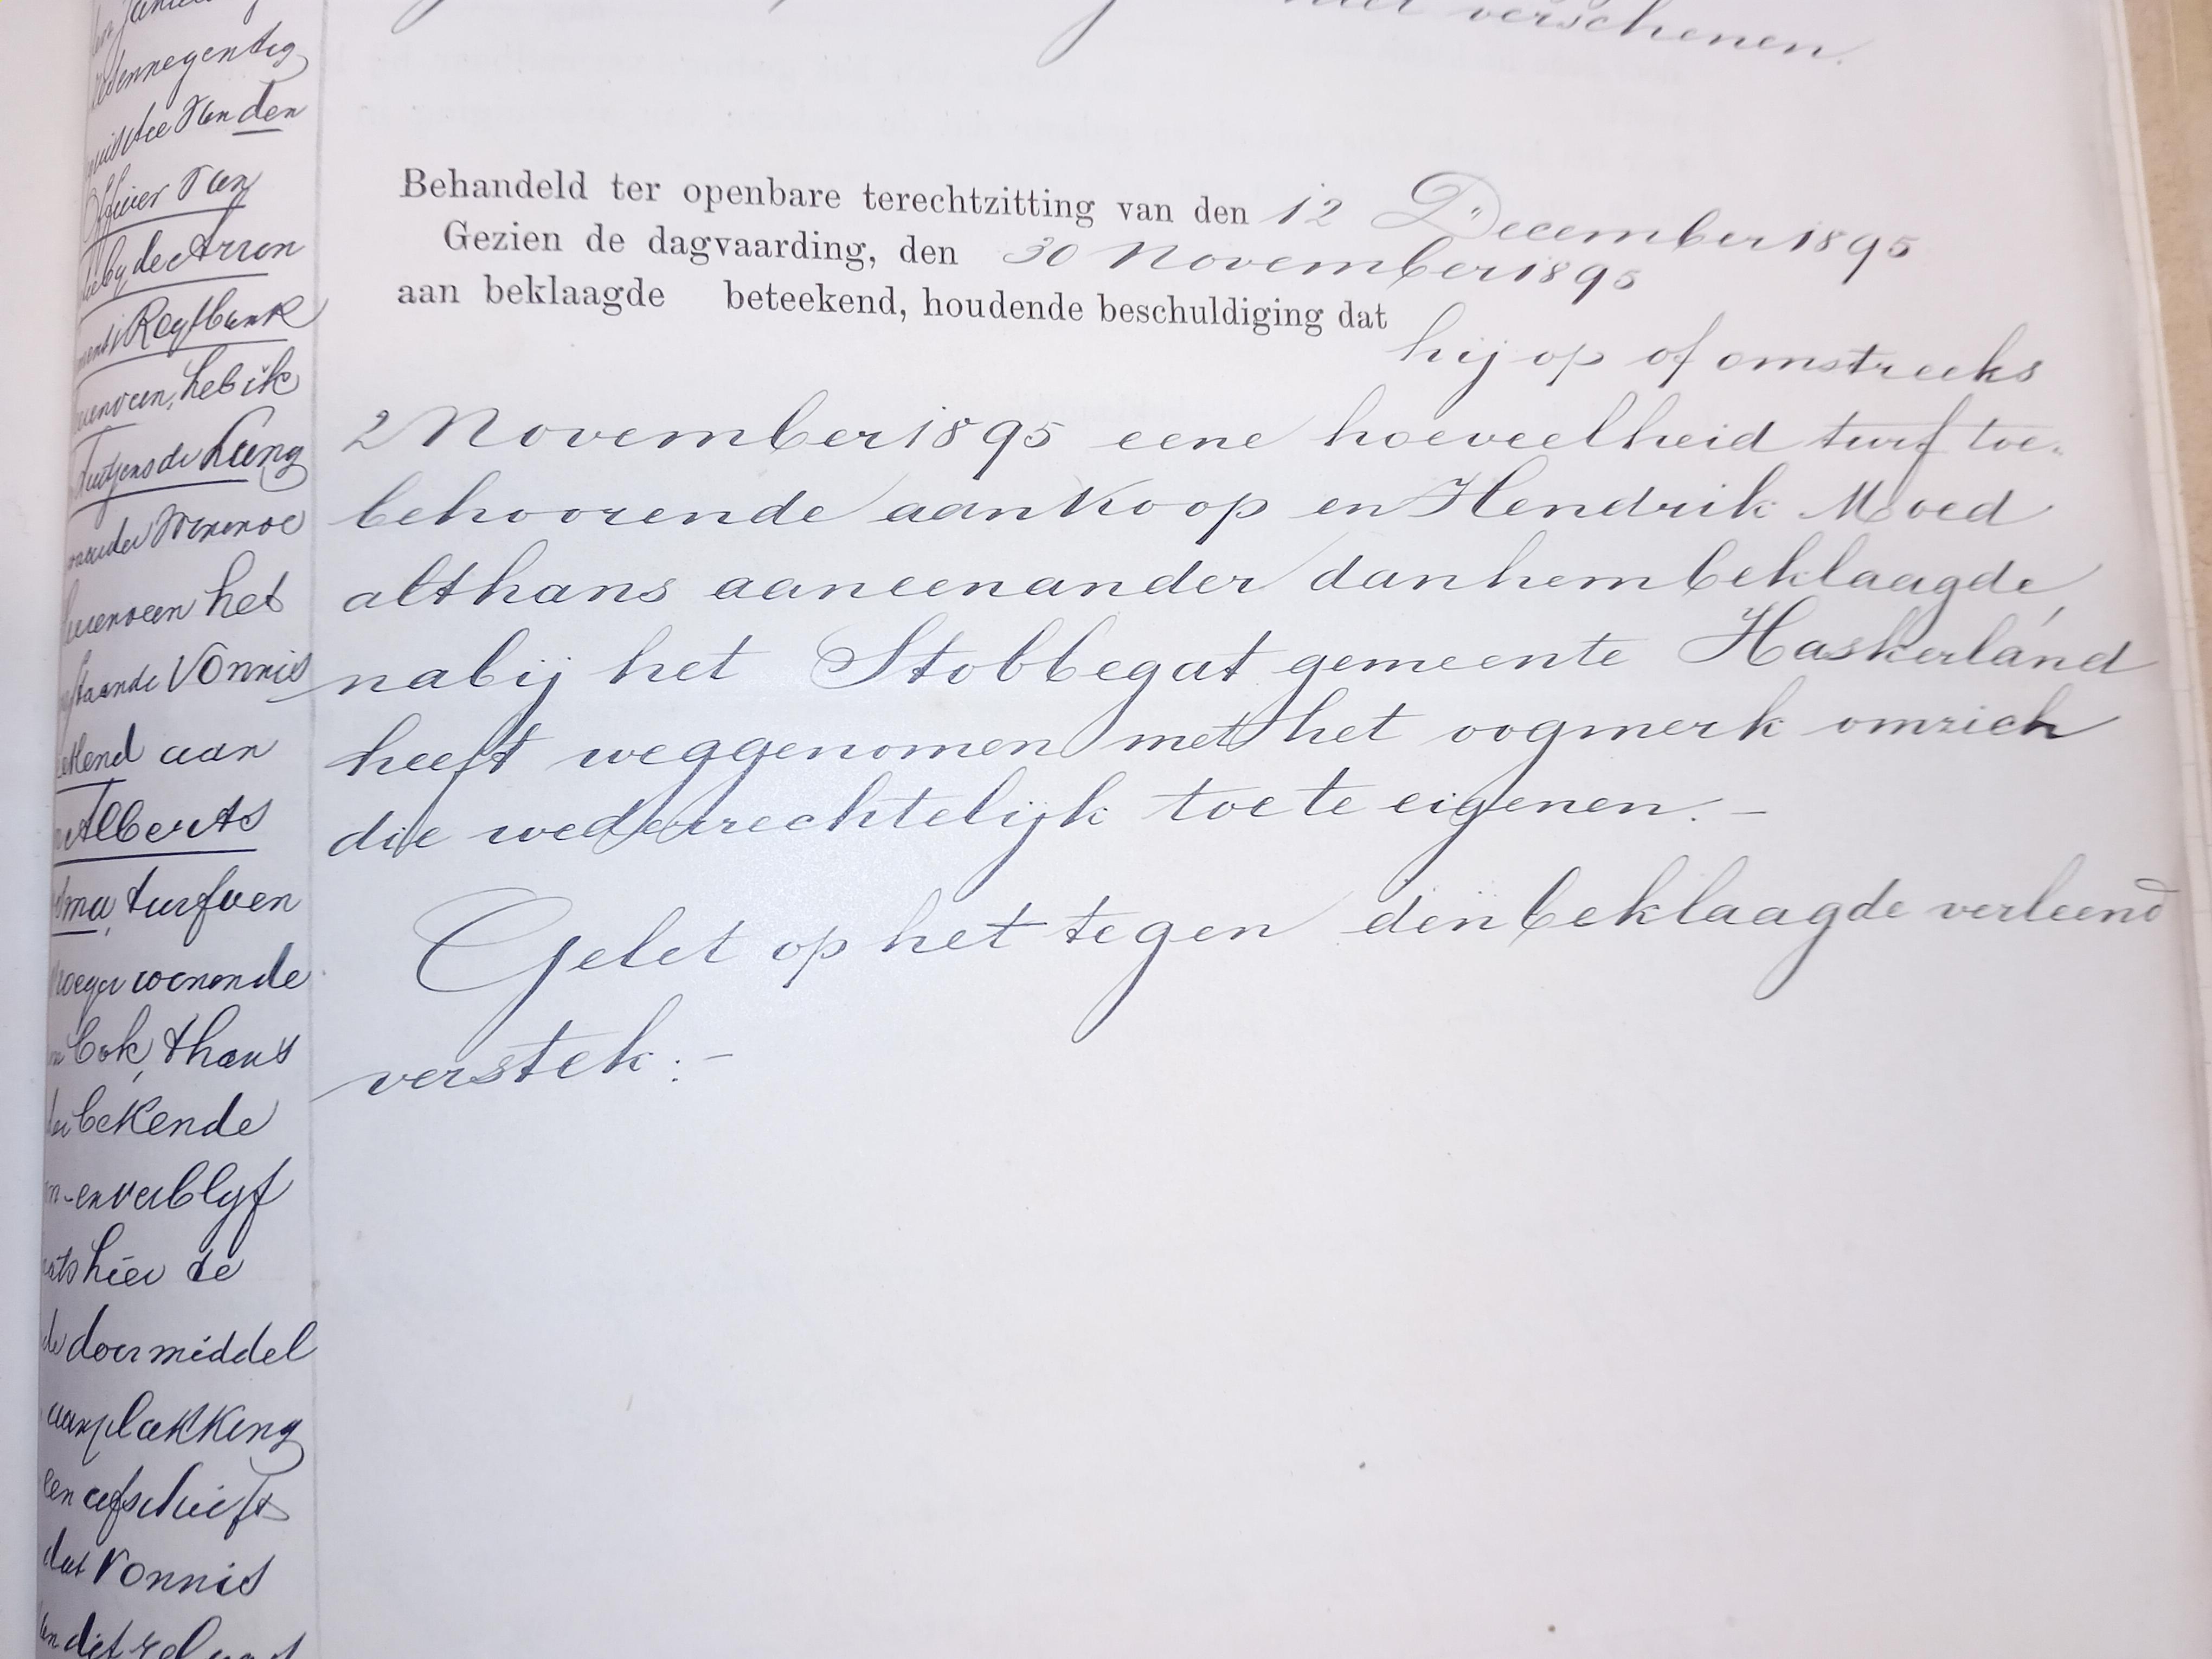 verschenen.
Behandeld ter openbare terechtzitting van den 12 December 1895
Gezien de dagvaarding, den 30 November 1895
aan beklaagde beteekend, houdende beschuldiging dat
hij op of omstreeks
2 November 1895 eene hoeveelheid turf toe-
behoorende aan Koop en Hendrik Moed
althans aan een ander dan hem beklaagde,
nabij het Stobbegat gemeente Haskerland
heeft weggenomen met het oogmerk om zich
die wederrechtelijk toe te eigenen. –
Gelet op het tegen den beklaagde verleend
verstek: –
negentig
van den
Officier van
de Arron
Regtbank
heb ik
het
Vonnis
aan
Alberts
turfven
woonende
Cok, thans
bekende
en verblyf
hier de
door middel
aanplakking
een afschrift
dat Vonnis